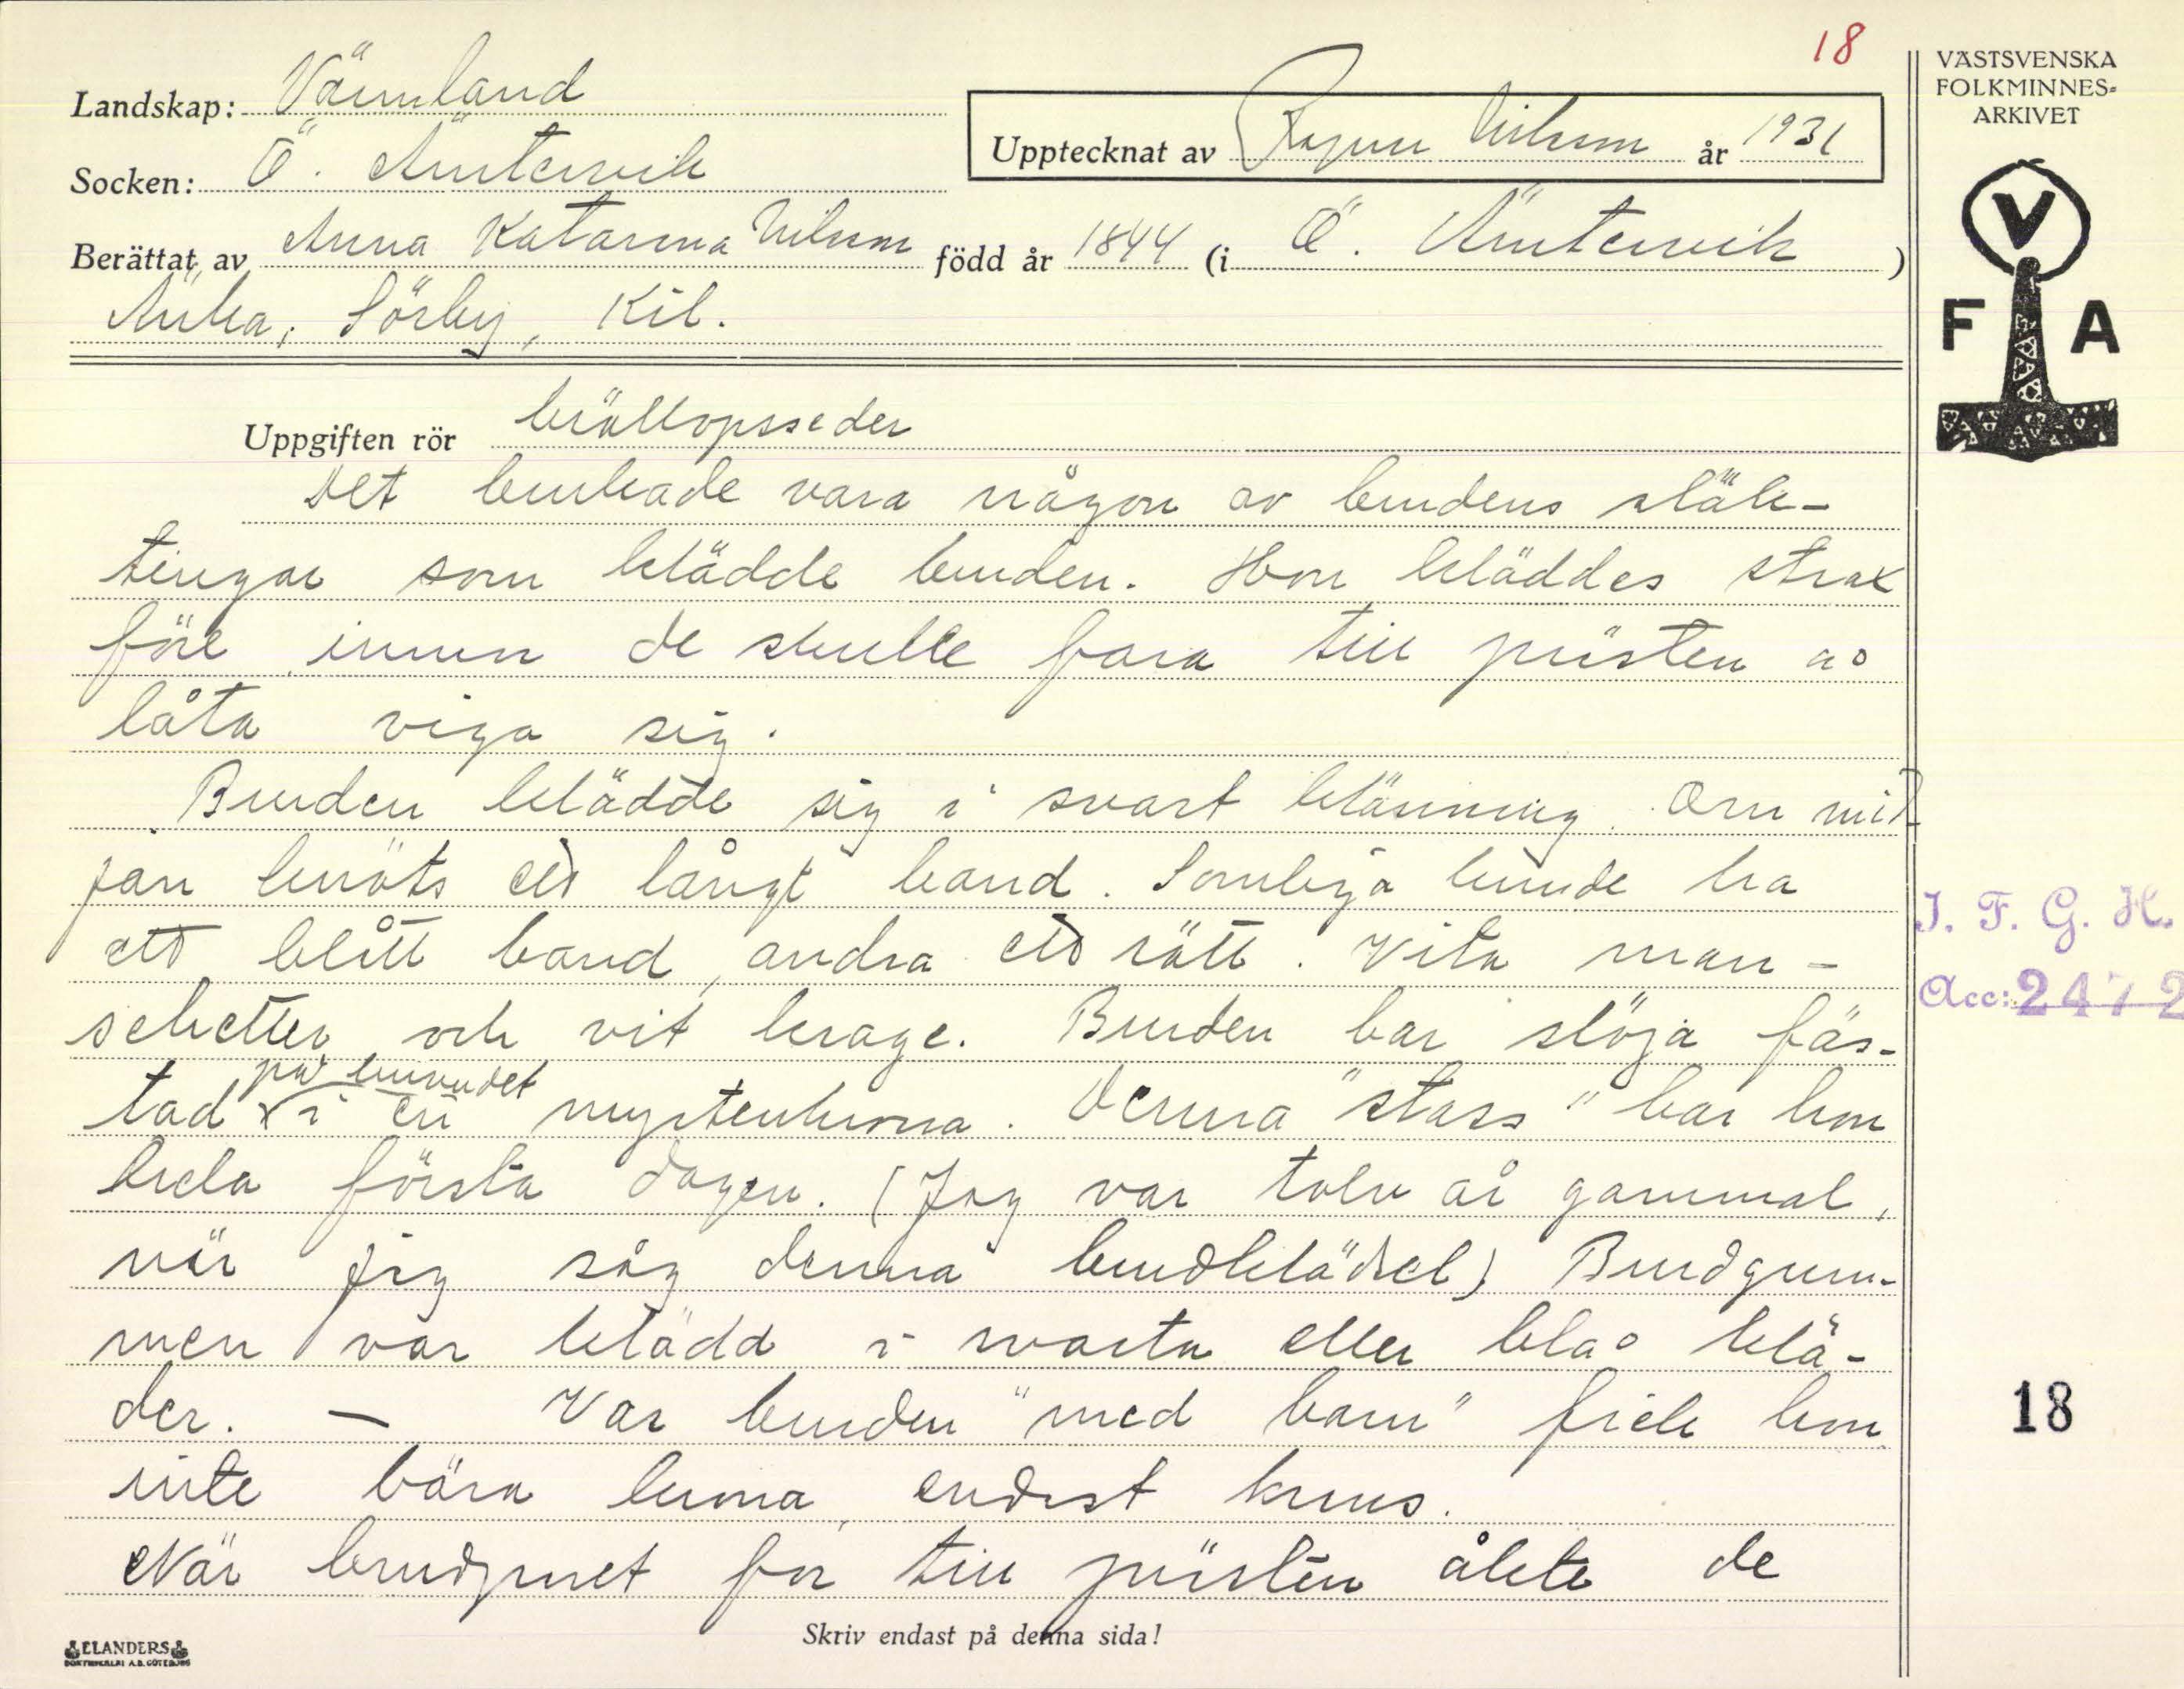 18
VÄSTSVENSKA
FOLKMINNES-
ARKIVET
Landskap: Värmland
Upptecknat av Ragnar Nilsson år 1931
Socken: Ö. Ämtervik
Berättat av Anna Katarina Nilsson född år 1844 (i Ö. Ämtervik )
Änka, Sörby, Kil.
V
F A
Uppgiften rör bröllopsseder
Det brukade vara någon av brudens släk-
tingar som klädde bruden. Hon kläddes strax
före innan de skulle fara till prästen ao
låta viga sig.
Bruden klädde sig i svart klänning. Om mid
jan knöts ett långt band. Somliga kunde ha
ett blått band, andra ett rött. Vita man-
schetter och vit krage. Bruden bar slöja fäs-
på huvudet
tad i en myrtenkrona. Denna "stass" bar hon
hela första dagen. (Jag var tolv år gammal,
när jag såg denna brudklädsel) Brudgum-
men var klädd i svarta eller blåo klä-
der. — Var bruden "med barn" fick hon
inte bära krona, endast krans.
När brudparet for till prästen åkte de
J. F. G. H.
Acc: 2472
18
Skriv endast på denna sida!
ELANDERS
BOKTRYCKERI A.B. GÖTEBORG